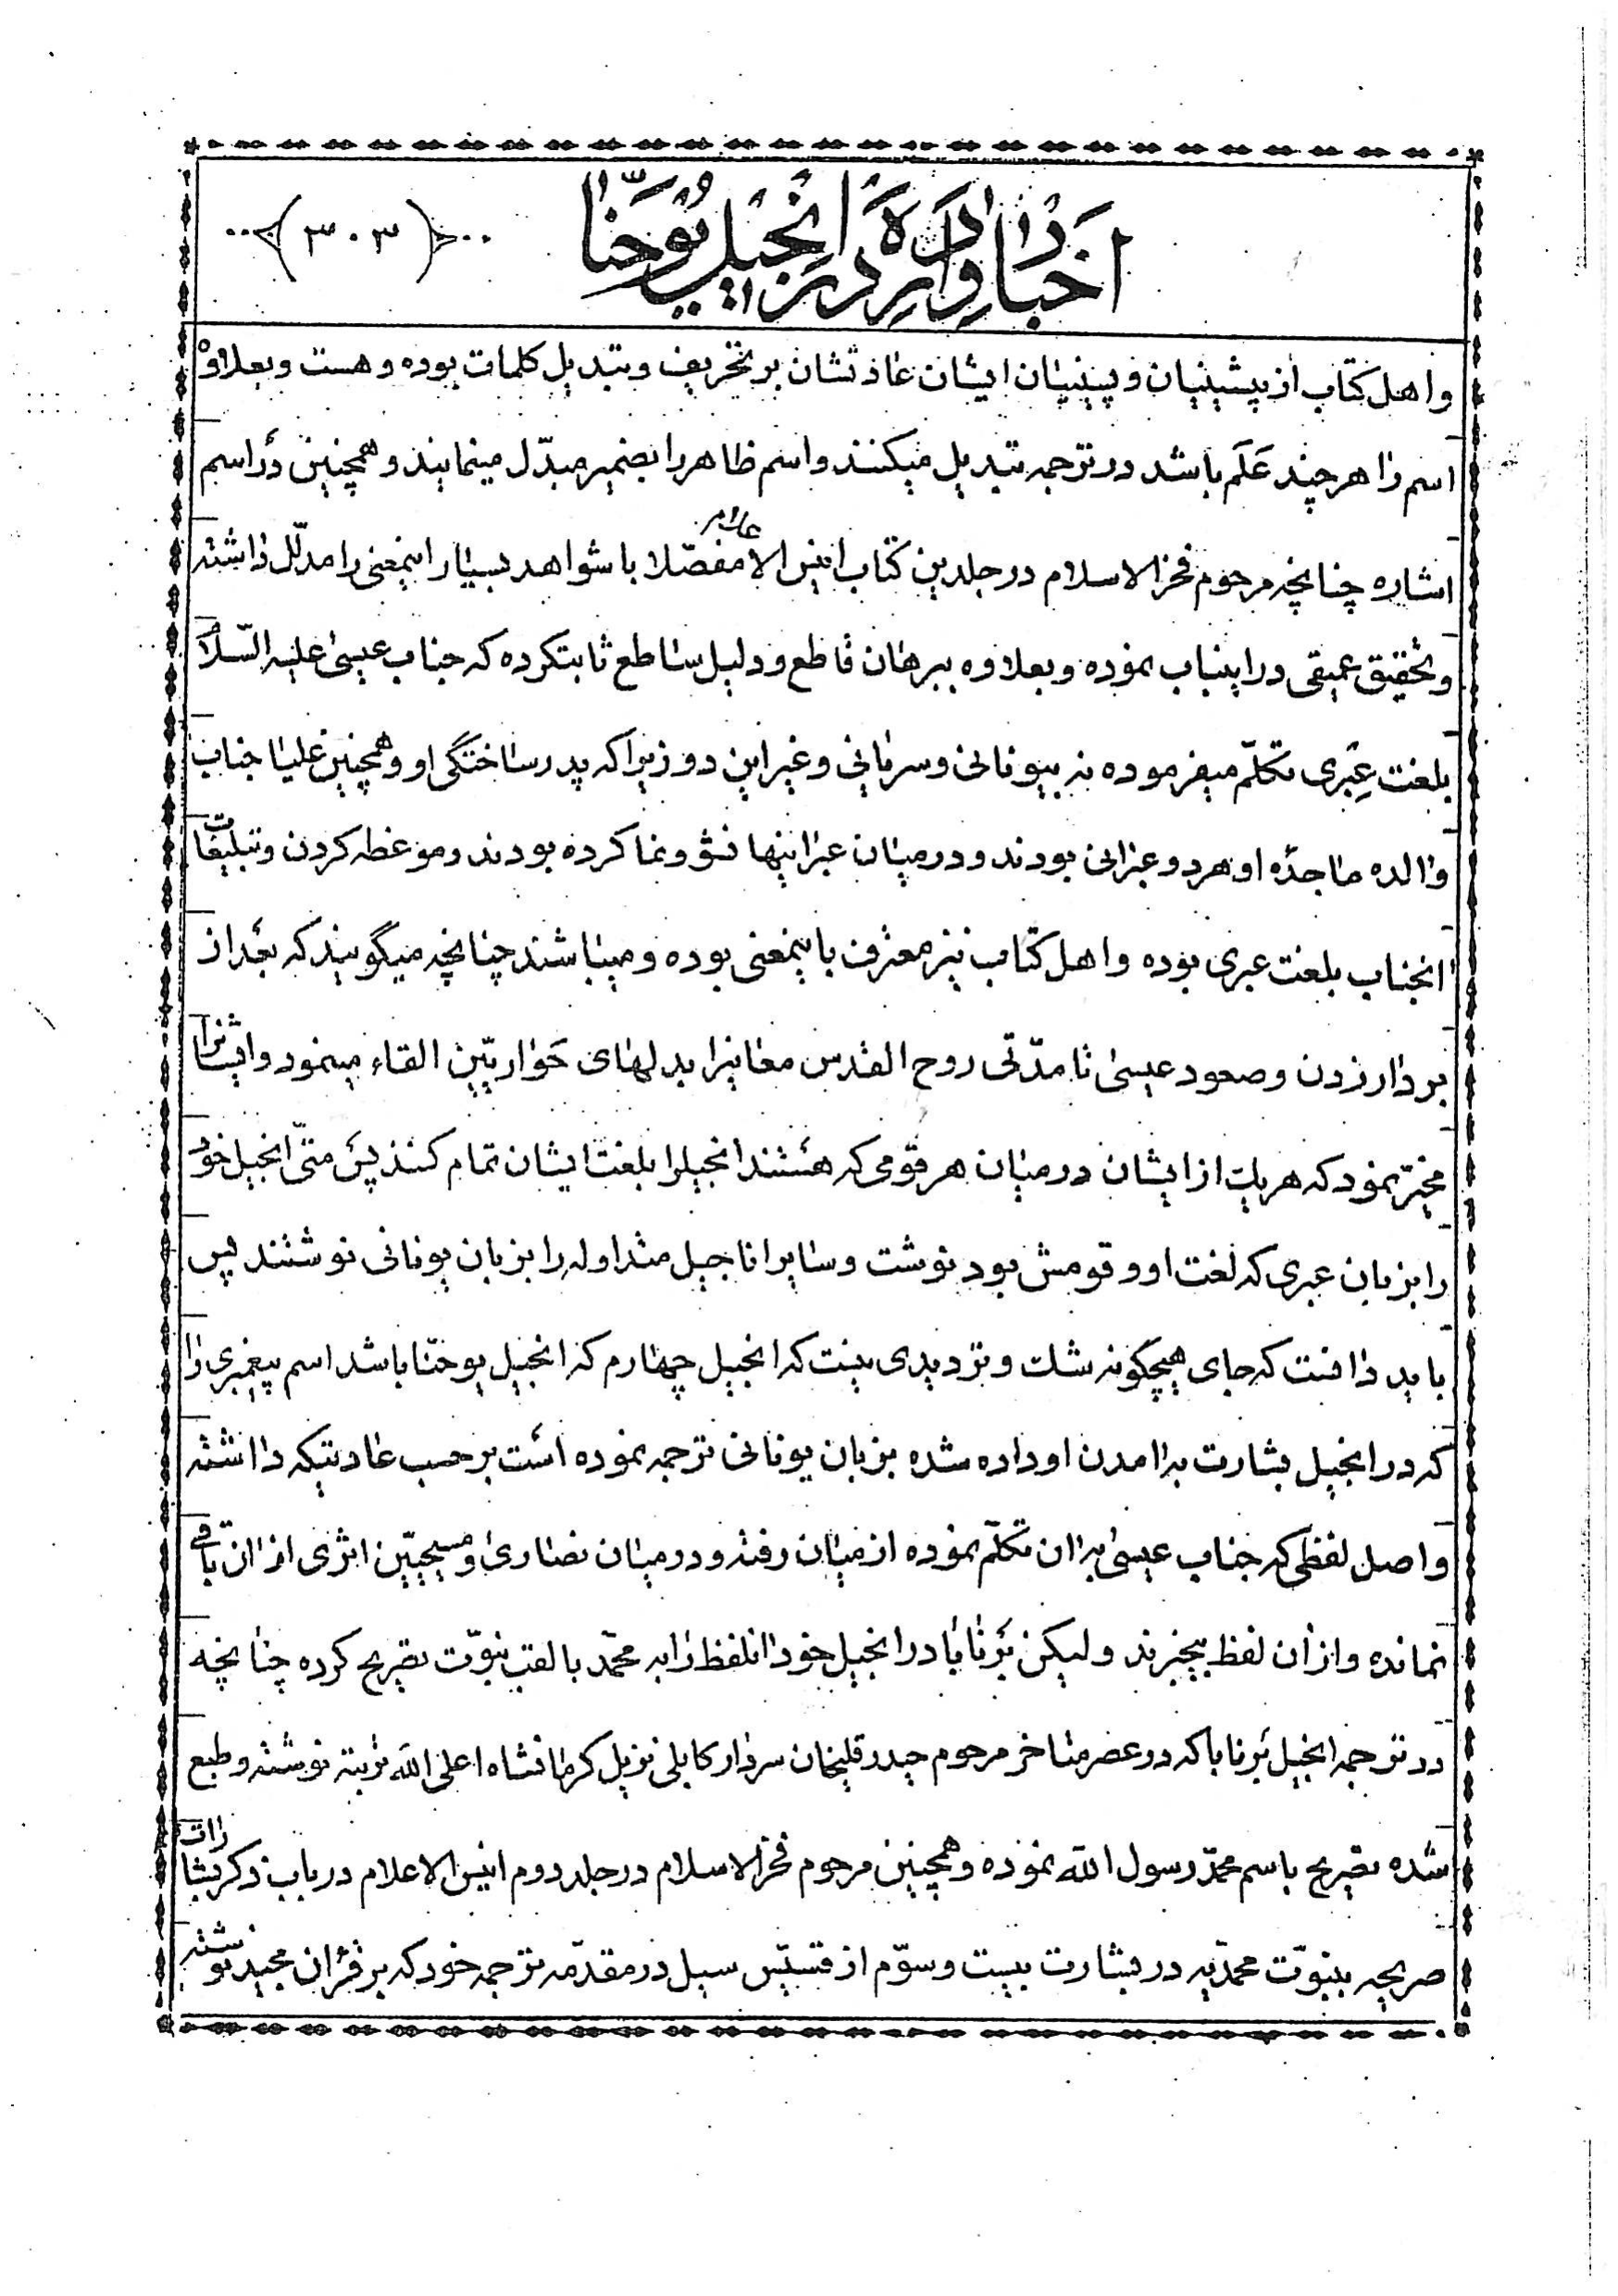 اخبار وارده در انجیل یوحنا
(۳۰۳)
و اهل کتاب از پیشینیان و پسینیان ایشان عادتشان بر تحریف و تبدیل کلمات بوده و هست و بعلاوه
اسم را هر چند عَلَم باشد در ترجمه تبدیل میکنند و اسم ظاهر را بضمیر مبدّل مینمایند و همچنین در اسم
اشاره چنانچه مرحوم فخر الاسلام در جلدین کتاب انیس الاعلام مفصّلا با شواهد بسیار اینمعنی را مدلّل داشته
و تحقیق عمیقی در اینباب نموده و بعلاوه ببرهان قاطع و دلیل ساطع ثابت کرده که جناب عیسی علیه السّلام
بلغت عِبری تکلّم میفرموده نه بیونانی و سریانی و غیر این دو زیرا که پدر ساختگی او و همچنین علیا جناب
والده ماجدهٔ او هر دو عبرانی بودند و در میان عبرانیها نشو و نما کرده بودند و موعظه کردن و تبلیغات
انجناب بلغت عبری بوده و اهل کتاب نیز معترف باینمعنی بوده و میباشند چنانچه میگویند که بعد از
بردار زدن و صعود عیسی تا مدّتی روح القدس معانیرا بدلهای حَواریّین القاء مینمود و ایشانرا
مخیّر نمود که هر یک از ایشان در میان هر قومی که هستند انجیلرا بلغت ایشان تمام کنند پس متّی انجیل خود
را بزبان عبری که لغت او و قومش بود نوشت و سایر اناجیل متداوله را بزبان یونانی نوشتند پس
باید دانست که جای هیچگونه شک و تردیدی نیست که انجیل چهارم که انجیل یوحنّا باشد اسم پیغمبری را
که در انجیل بشارت به امدن او داده شده بزبان یونانی ترجمه نموده است بر حسب عادتیکه داشته
و اصل لفظی که جناب عیسی به ان تکلّم نموده از میان رفته و در میان نصاری و مسیحیّین اثری از ان باقی
نمانده و از ان لفظ بیخبرند و لیکن بَرنابا در انجیل خود انلفظ را به محمّد با لقب نبوّت تصریح کرده چنانچه
در ترجمه انجیل بَرنابا که در عصر متاخر مرحوم حیدر قلیخان سردار کابلی نزیل کرمانشاه اعلی الله تربته نوشته و طبع
شده تصریح باسم محمّد رسول الله نموده و همچنین مرحوم فخر الاسلام در جلد دوم انیس الاعلام در باب ذکر بشارات
صریحه بنبوّت محمّدیه در بشارت بیست و سوّم از قسیّس سیل در مقدّمه ترجمه خود که بر قران مجید نوشته